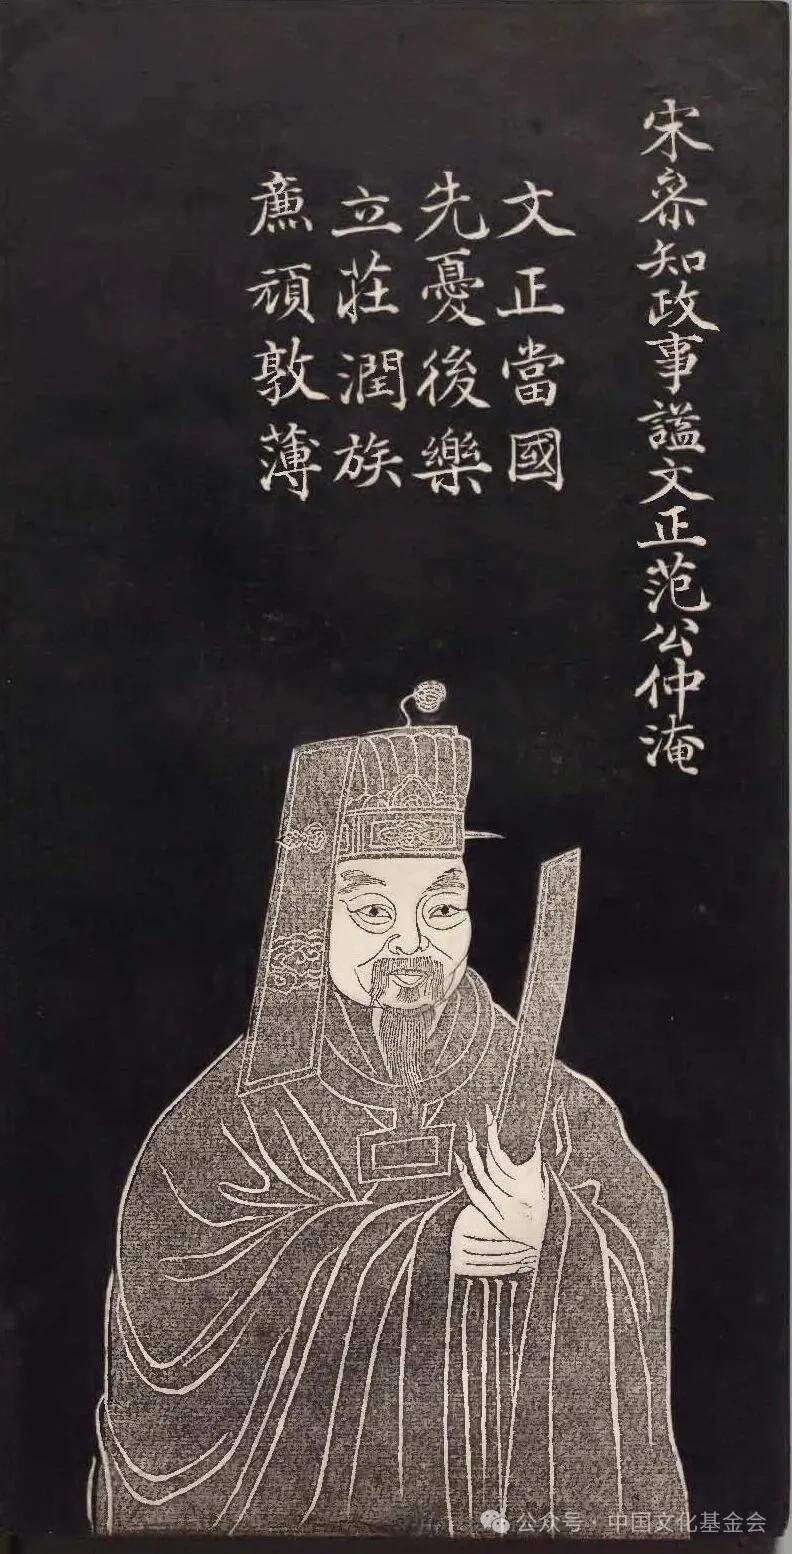 宋叅知政事諡文正范公仲淹
文正當國
先憂後樂
立莊潤族
廉頑敦薄
公众号·中国文化基金会